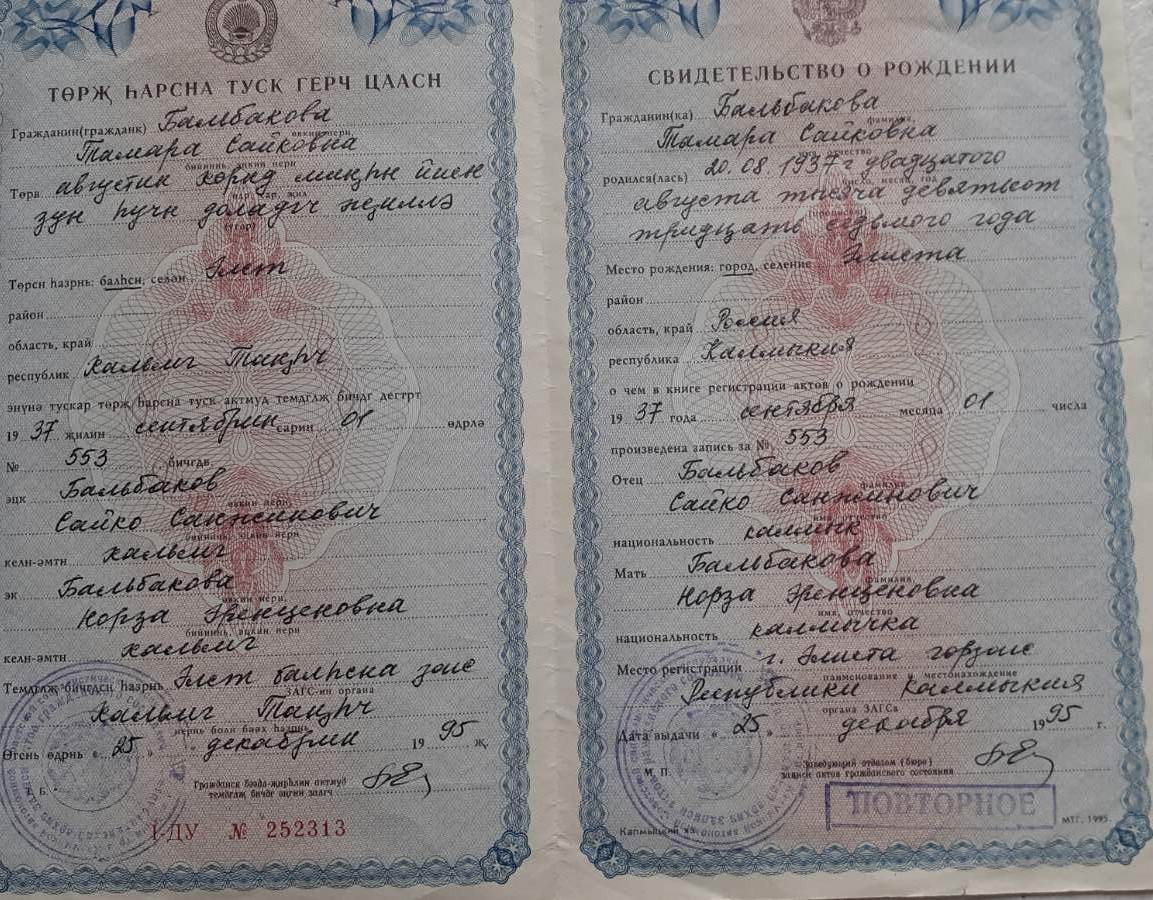 ТӨРҖ ҺАРСНА ТУСК ГЕРЧ ЦААСН
Гражданин(гражданк) Бальбакова
овкин нерн
Тамара Сайковна
бийиннь, эцкин нерн
Төрв августин хөрнд миңһн йисн
зун һучн доладгч җиллә
Төрсн һазрнь: балһсн, селән Элст
район
область, край
республик Хальмг Таңһч
энүнә тускар төрҗ һарсна туск актмуд темдглҗ бичдг дегтрт
19 37 җилин сентябрин сарин 01 өдрлә
№ 553 бичгдв
эцк Бальбаков
овкин нерн
Сайко Санжинович
бийиннь, эцкин нерн
келн-әмтн хальмг
эк Бальбакова
овкин нерн
Норза Эренценовна
бийиннь, эцкин нерн
келн-әмтн хальмг
Темдглҗ бичгдсн һазрнь Элст балһсна загс
ЗАГС-ин органа
Хальмг Таңһч
нернь болн бәәх һазрнь
Өгсн өдрнь « 25 » декабрин 19 95 җ.
Гражданск бәәдл-җирһлин актмуд
темдглҗ бичдг әңгин заллач
I-ДУ № 252313
СВИДЕТЕЛЬСТВО О РОЖДЕНИИ
Гражданин(ка) Бальбакова
фамилия,
Тамара Сайковна
отчество
родился(лась) 20.08.1937 г двадцатого
августа тысяча девятьсот
тридцать седьмого года
Место рождения: город, селение Элиста
район
область, край Россия
республика Калмыкия
о чем в книге регистрации актов о рождении
19 37 года сентября месяца 01 числа
произведена запись за № 553
Отец Бальбаков
фамилия
Сайко Санжинович
имя, отчество
национальность калмык
Мать Бальбакова
фамилия,
Норза Эренценовна
имя, отчество
национальность калмычка
Место регистрации г. Элиста горзагс
наименование и местонахождение
Республики Калмыкия
органа ЗАГСа
Дата выдачи « 25 » декабря 19 95 г.
М. П.
Заведующий отделом (бюро)
записи актов гражданского состояния
ПОВТОРНОЕ
МТГ, 1995.